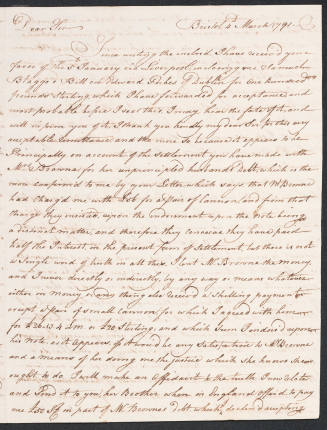 Dear Sir Bristol 4th March 1791
Since writing the inclosed I have received your
favor of the 5th January via Liverpool enclosing me Samuel
Blagge's Bill on Edward Forbes Dublin for One hundred
pounds Sterling which I have forwarded for acceptance and
most probable before I close this I may hear the fate of it and
will inform you of it. I thank you kindly my dear Sir for this very
acceptable remittance and the more so because it appears to be
Principally on account of the Settlement you have made with
Mrs Browne for her unprincipled husband's debt, which is the
more confirmed to me by your Letter which says that Mr Browne
had charged me with £26 for a pair of Cannon and from that
charge they insisted upon the endorsement upon the Note being
a distinct matter, and therefore they conceive they have paid
half the Interest in the present form of Settlement but there is not
a Single word of truth in all this. I lent Mr Browne the money,
and I never directly or indirectly, by any way or means whatever
either in money or any thing else received a Shilling payment
except a pair of Small Cannon for which I agreed with him
for £26.13.4 or £20 Sterling, and which Sum I indorsed upon
his Note as it appears. If it would be any Satisfaction to Mrs Browne
and a means of her doing me the justice which she knows she
ought to do I will make an Affidavit to the truth I now relate
and Send it to you, her Brother when in England offered to pay
me £50 Stg in part of Mr Brownes debt which I declined accepting